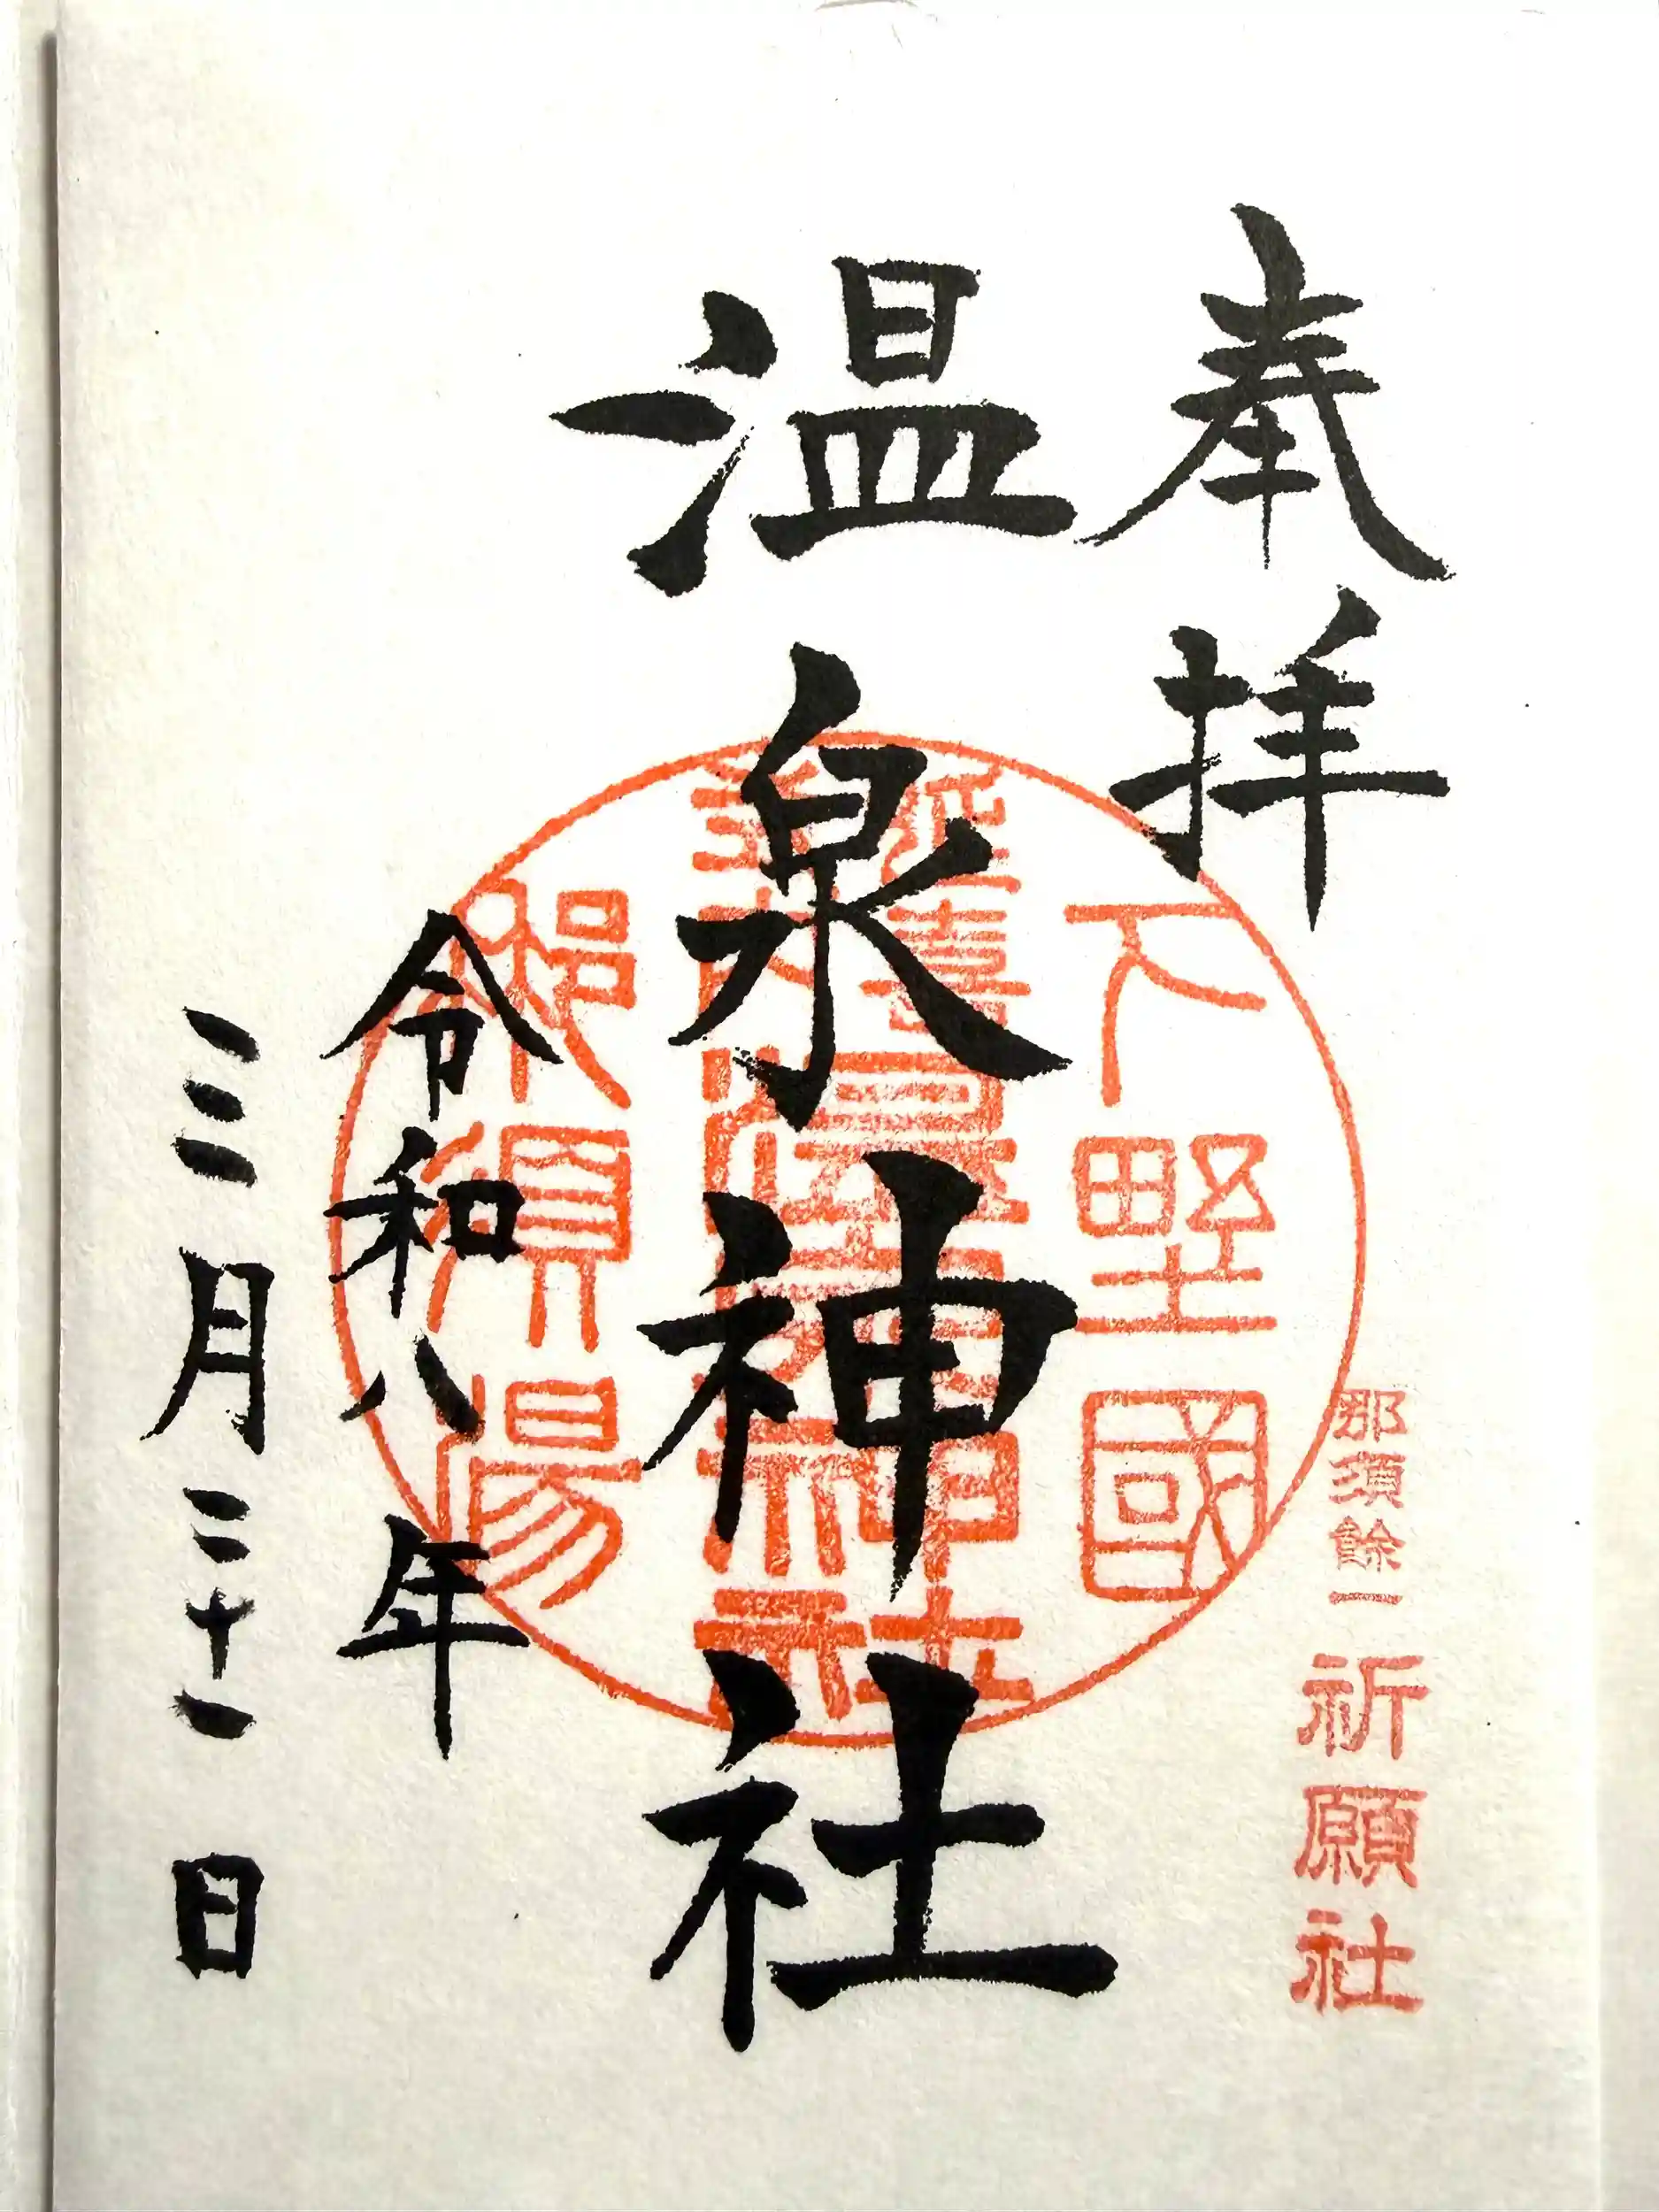 奉拝
那須餘一
祈願社
下野國
温泉神社
延喜式内
温泉神社
那須湯
令和八年
三月二十一日